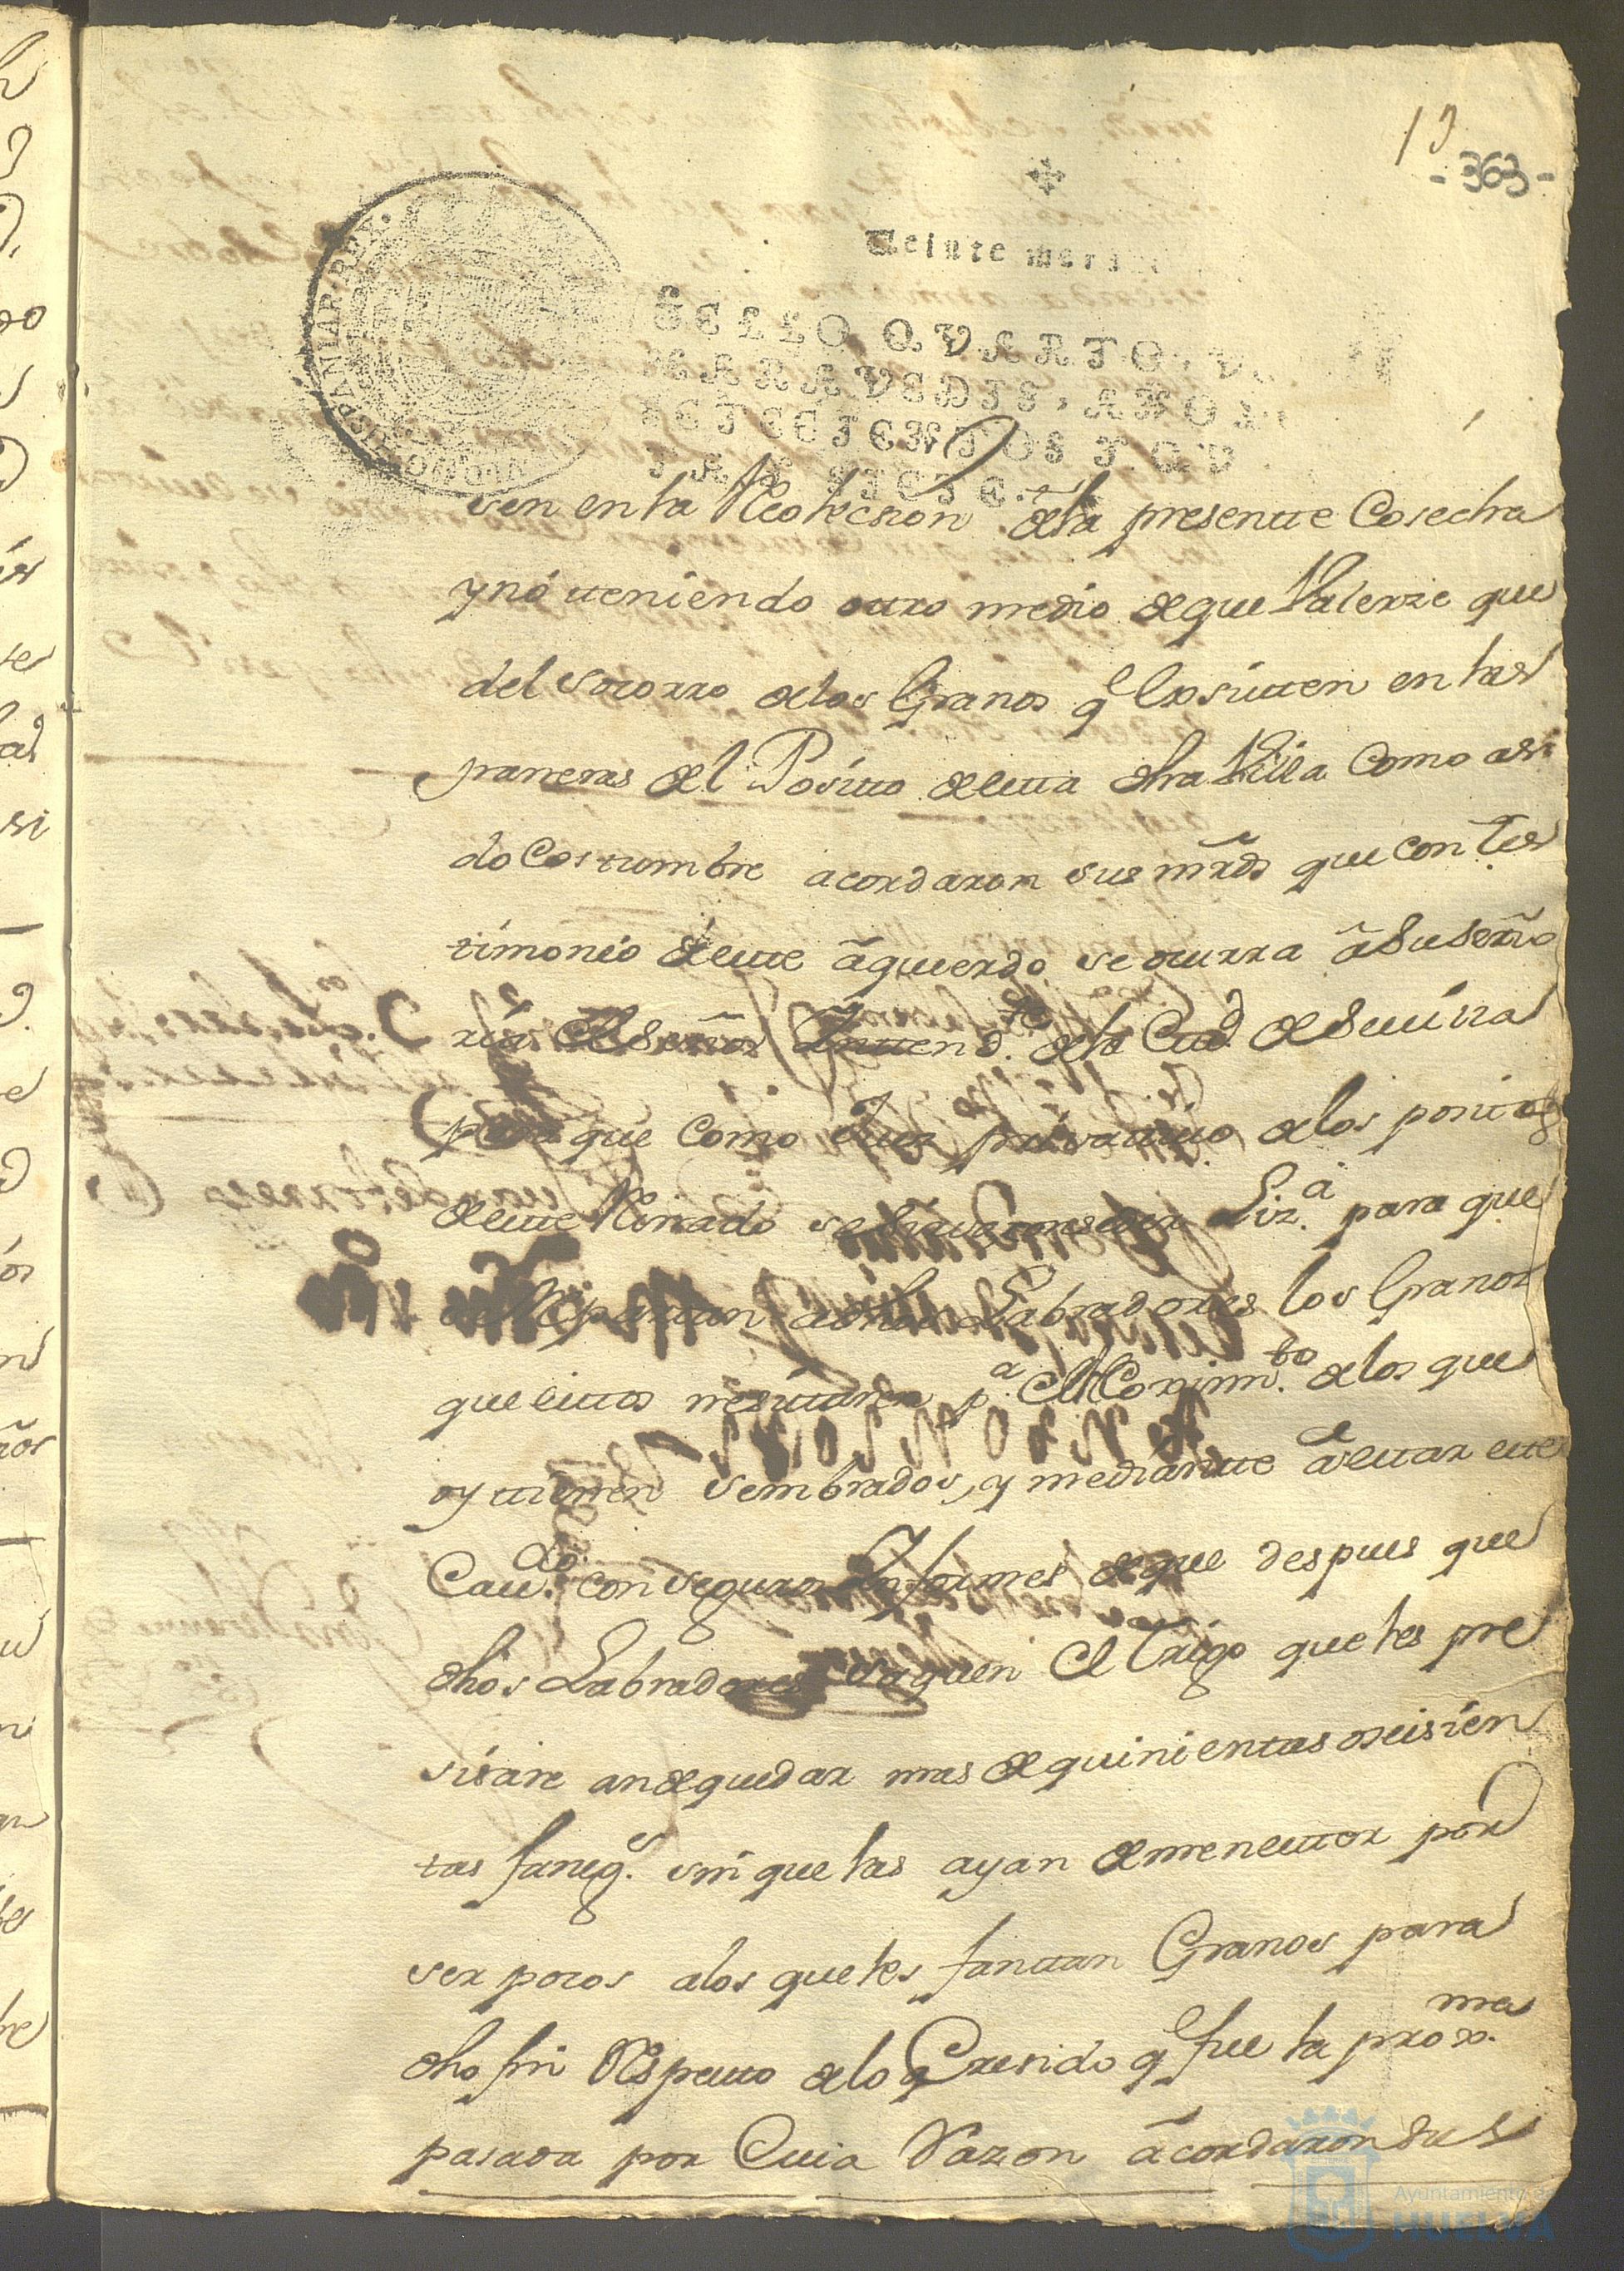 19
-363-
Veinte marav
SELLO QVARTO, V
MARAVEDIS, AÑO
SETECIENTOS Y QV
Y SIETE.
HISPANIAR. REX
sen en la Recolecsion dela presentte Cosecha
y no tteniendo ottro medio deque Valerze que
del socorro delos Granos q.e Exsistten en las
paneras del Positto de estta dha Villa Como asi
do Costumbre acordaron sus mrds. que con tes
timonio de estte acquerdo se ocurra a Su Seño
ria el Señor Yntten.te dela Ciud. de Sevilla
para que como Juez privativo delos positos
de estte Reinado se sirva conseder Liz.a para que
se Repartan adhos Labradores los Granos
que esttos nesesittaren p.a el Cogim.to delos que
oy ttienen sembrados, y mediantte a esttar estte
Cav.do con seguros Ynformes deque despues que
dhos Labradores saquen el trigo que les pre
sisare an de quedar mas de quinientas o seisien
tas faneg.s sin que las ayan de menestter por
ser pocos alos que les faltan Granos para
dho fin Respectto delo Cresido q.e fue la proxi.ma
pasada por Cuia Razon acordaron sus
Ayuntamiento de
HUELVA